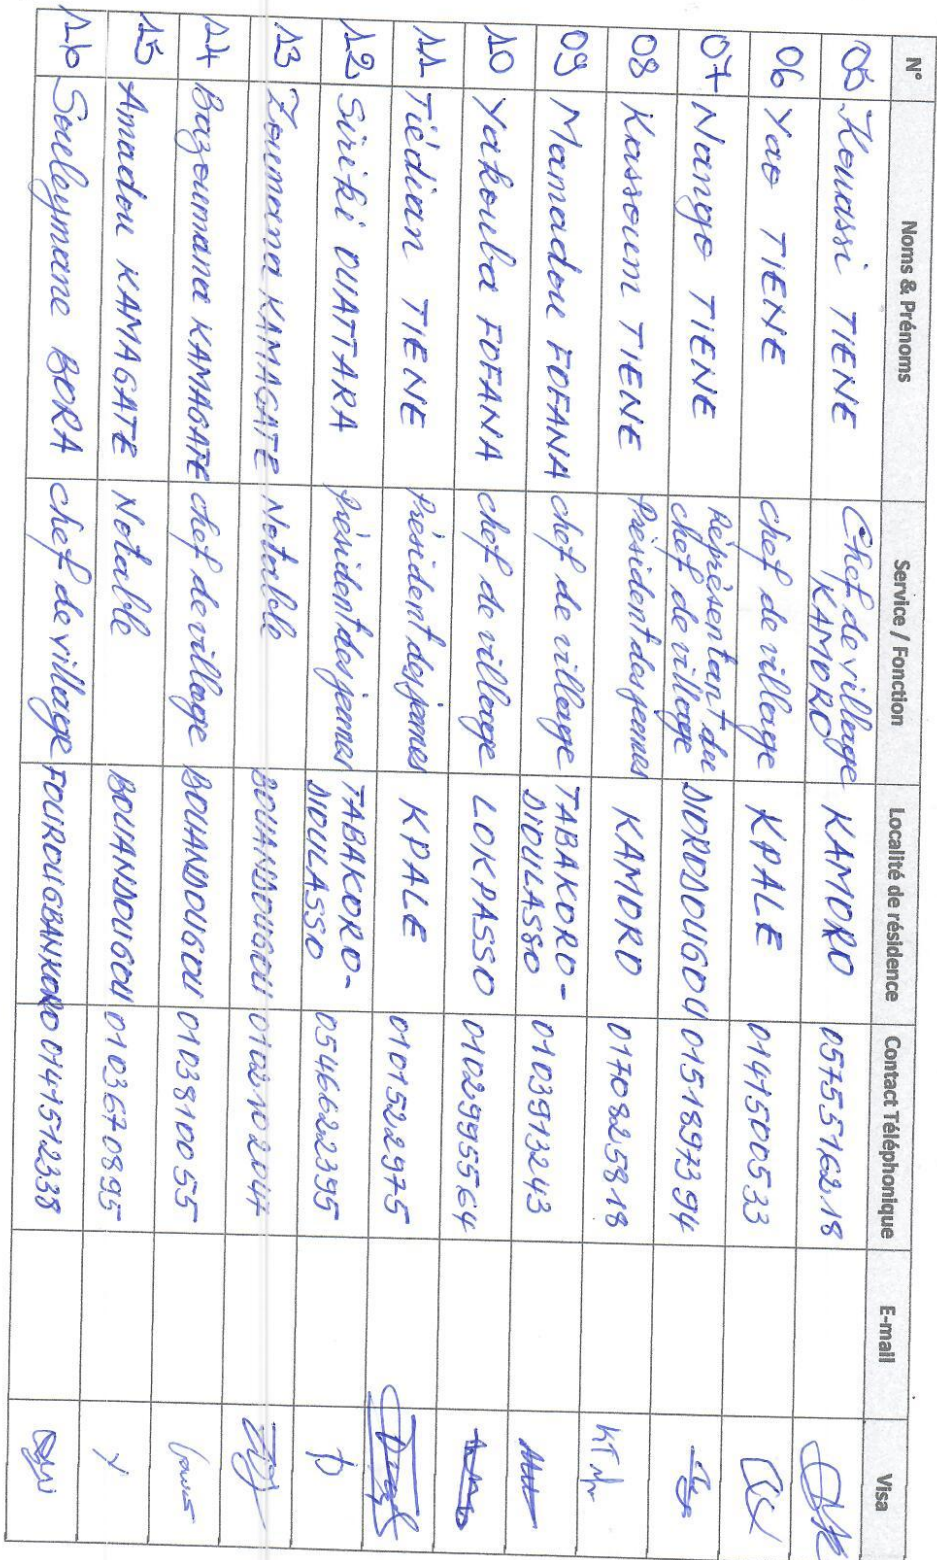 N° Noms & Prénoms Service / Fonction Localité de résidence Contact Téléphonique E-mail Visa
05 Kouassi TIENE Chef de village KAMORO KAMORO 0575551628
06 Yao TIENE chef de village KPALE 0141500533
07 Nango TIENE Réprésentant du chef de village DIORODOUGOU 0151897394
08 Kassoum TIENE Président des jeunes KAMORO 0170825818 KT
09 Mamadou FOFANA chef de village TABAKORO-DIOULASSO 0103913243
10 Yakouba FOFANA chef de village LOKPASSO 0102995564
11 Tiédian TIENE Président des jeunes KPALE 0101522975
12 Siriki OUATTARA Président des jeunes TABAKORO-DIOULASSO 0546622395
13 Zoumana KAMAGATE Notable BOUANDOUGOU
14 Bazoumana KAMAGATE chef de village BOUANDOUGOU 0103810055
15 Amadou KAMAGATE Notable BOUANDOUGOU 0103670895
16 Souleymane BORA chef de village FOUROUGBANKORO 0141512338